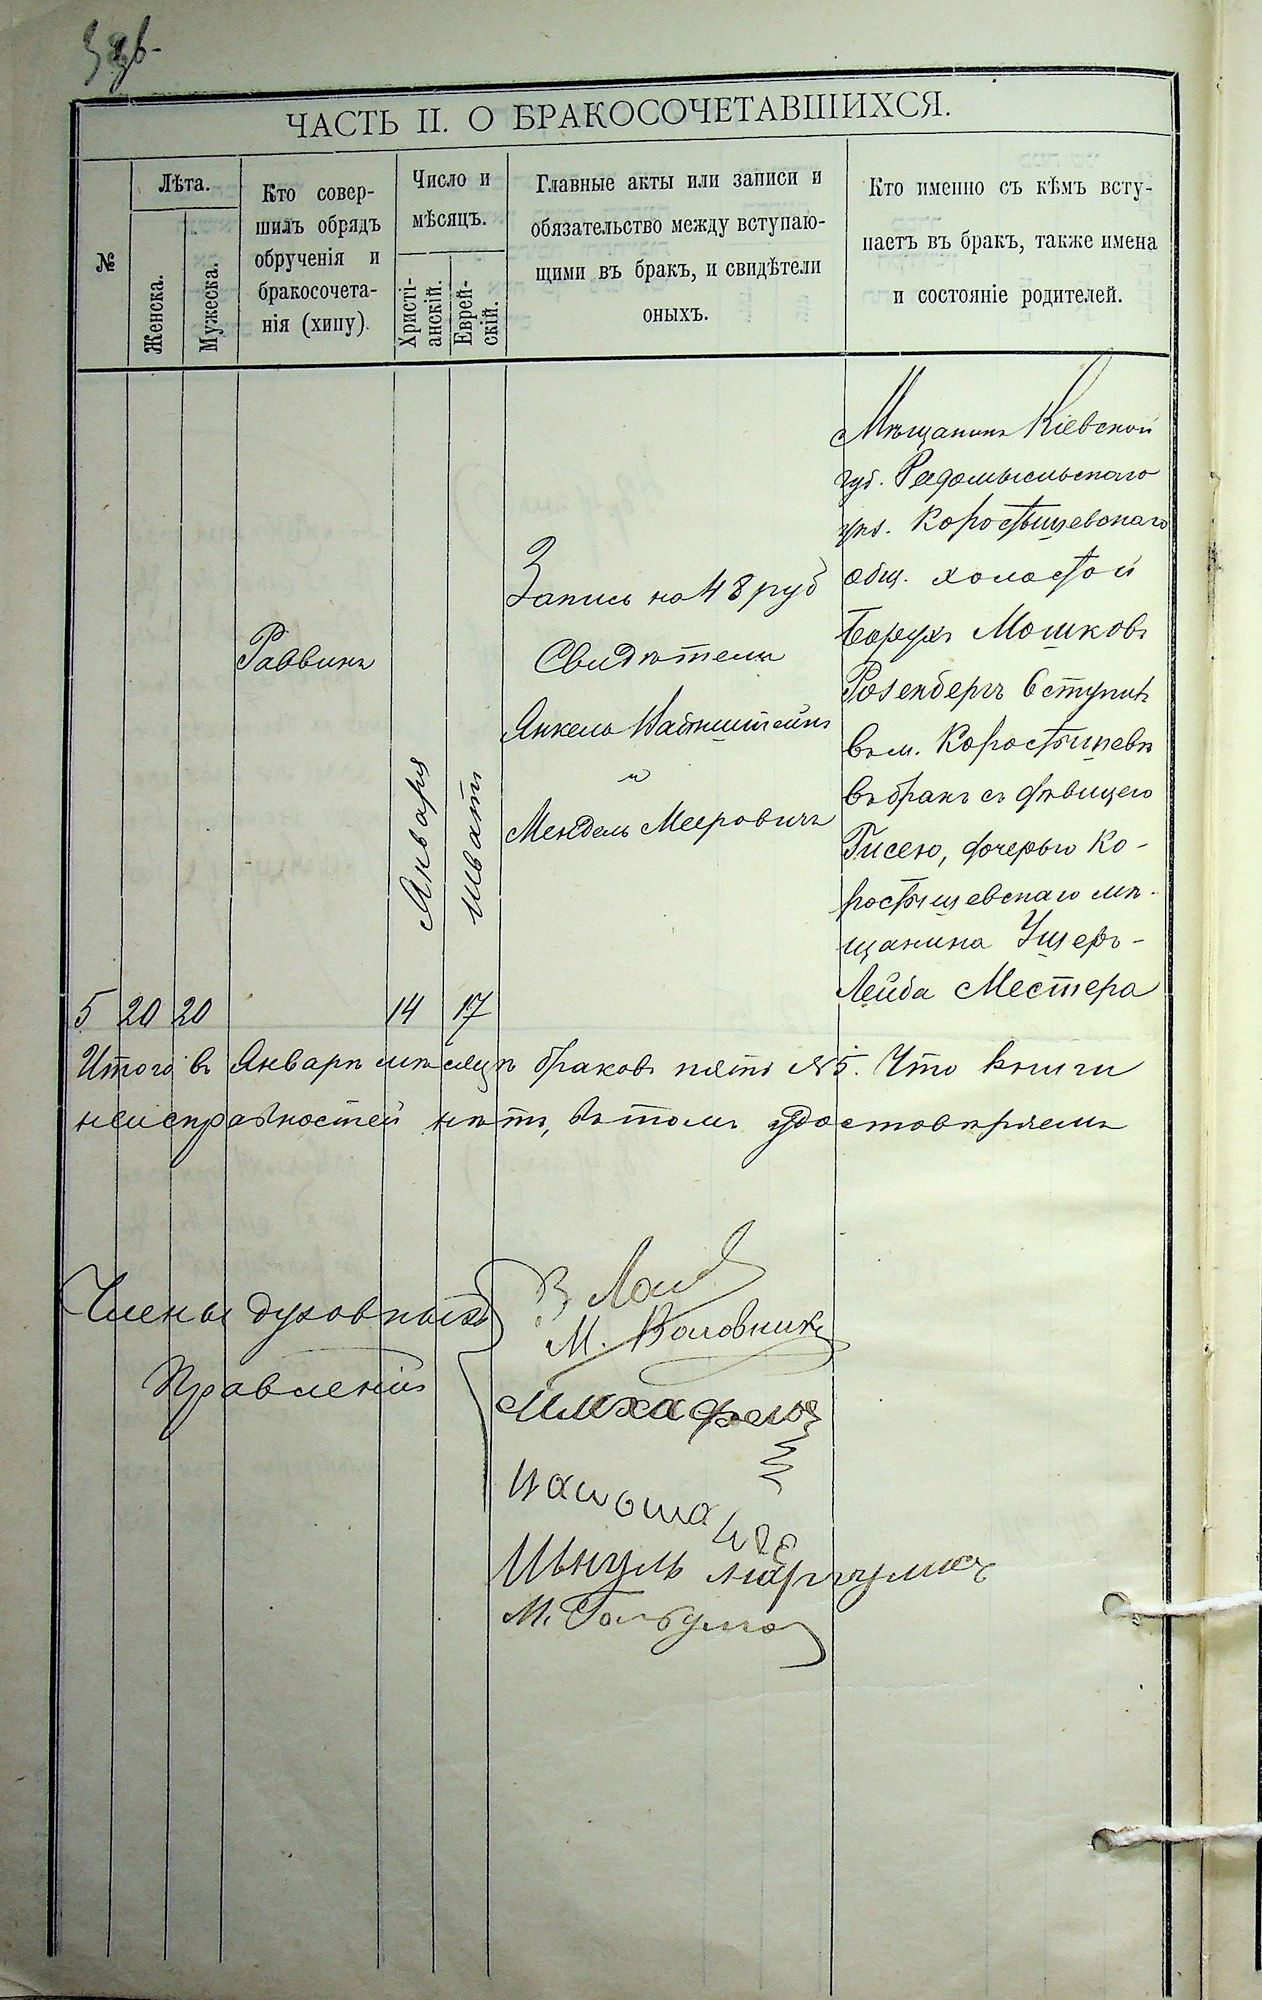 ЧАСТЬ II. О БРАКОСОЧЕТАВШИХСЯ.
№
Лѣта.
Женска.
Мужеска.
Кто совер-
шилъ обрядъ
обрученія и
бракосочета-
нія (хипу).
Число и
мѣсяцъ.
Христі-
анскій.
Еврей-
скій.
Главные акты или записи и
обязательство между вступаю-
щими въ бракъ, и свидѣтели
оныхъ.
Кто именно съ кѣмъ всту-
паетъ въ бракъ, также имена
и состояніе родителей.
5
20
20
Раввинъ
Января
14
Шватъ
17
Запись на 48 руб
Свидѣтели
Янкель Вайнштейнъ
и
Мендель Мееровичъ
Мѣщанинъ Кіевской
губ. Радомысльскаго
уѣз. Коростышевскаго
общ. холостой
Борухъ Мошковъ
Розенбергъ вступилъ
въ м. Коростышевѣ
въ бракъ съ дѣвицею
Гисею, дочерью Ко-
ростышевскаго мѣ-
щанина Ушеръ-
Лейба Местера
Итого въ Январѣ мѣсяцѣ браковъ пять №5. Что книги
неисправностей нѣтъ, въ томъ удостовѣряемъ
Члены духовныхъ
Правленій
М. Воловникъ